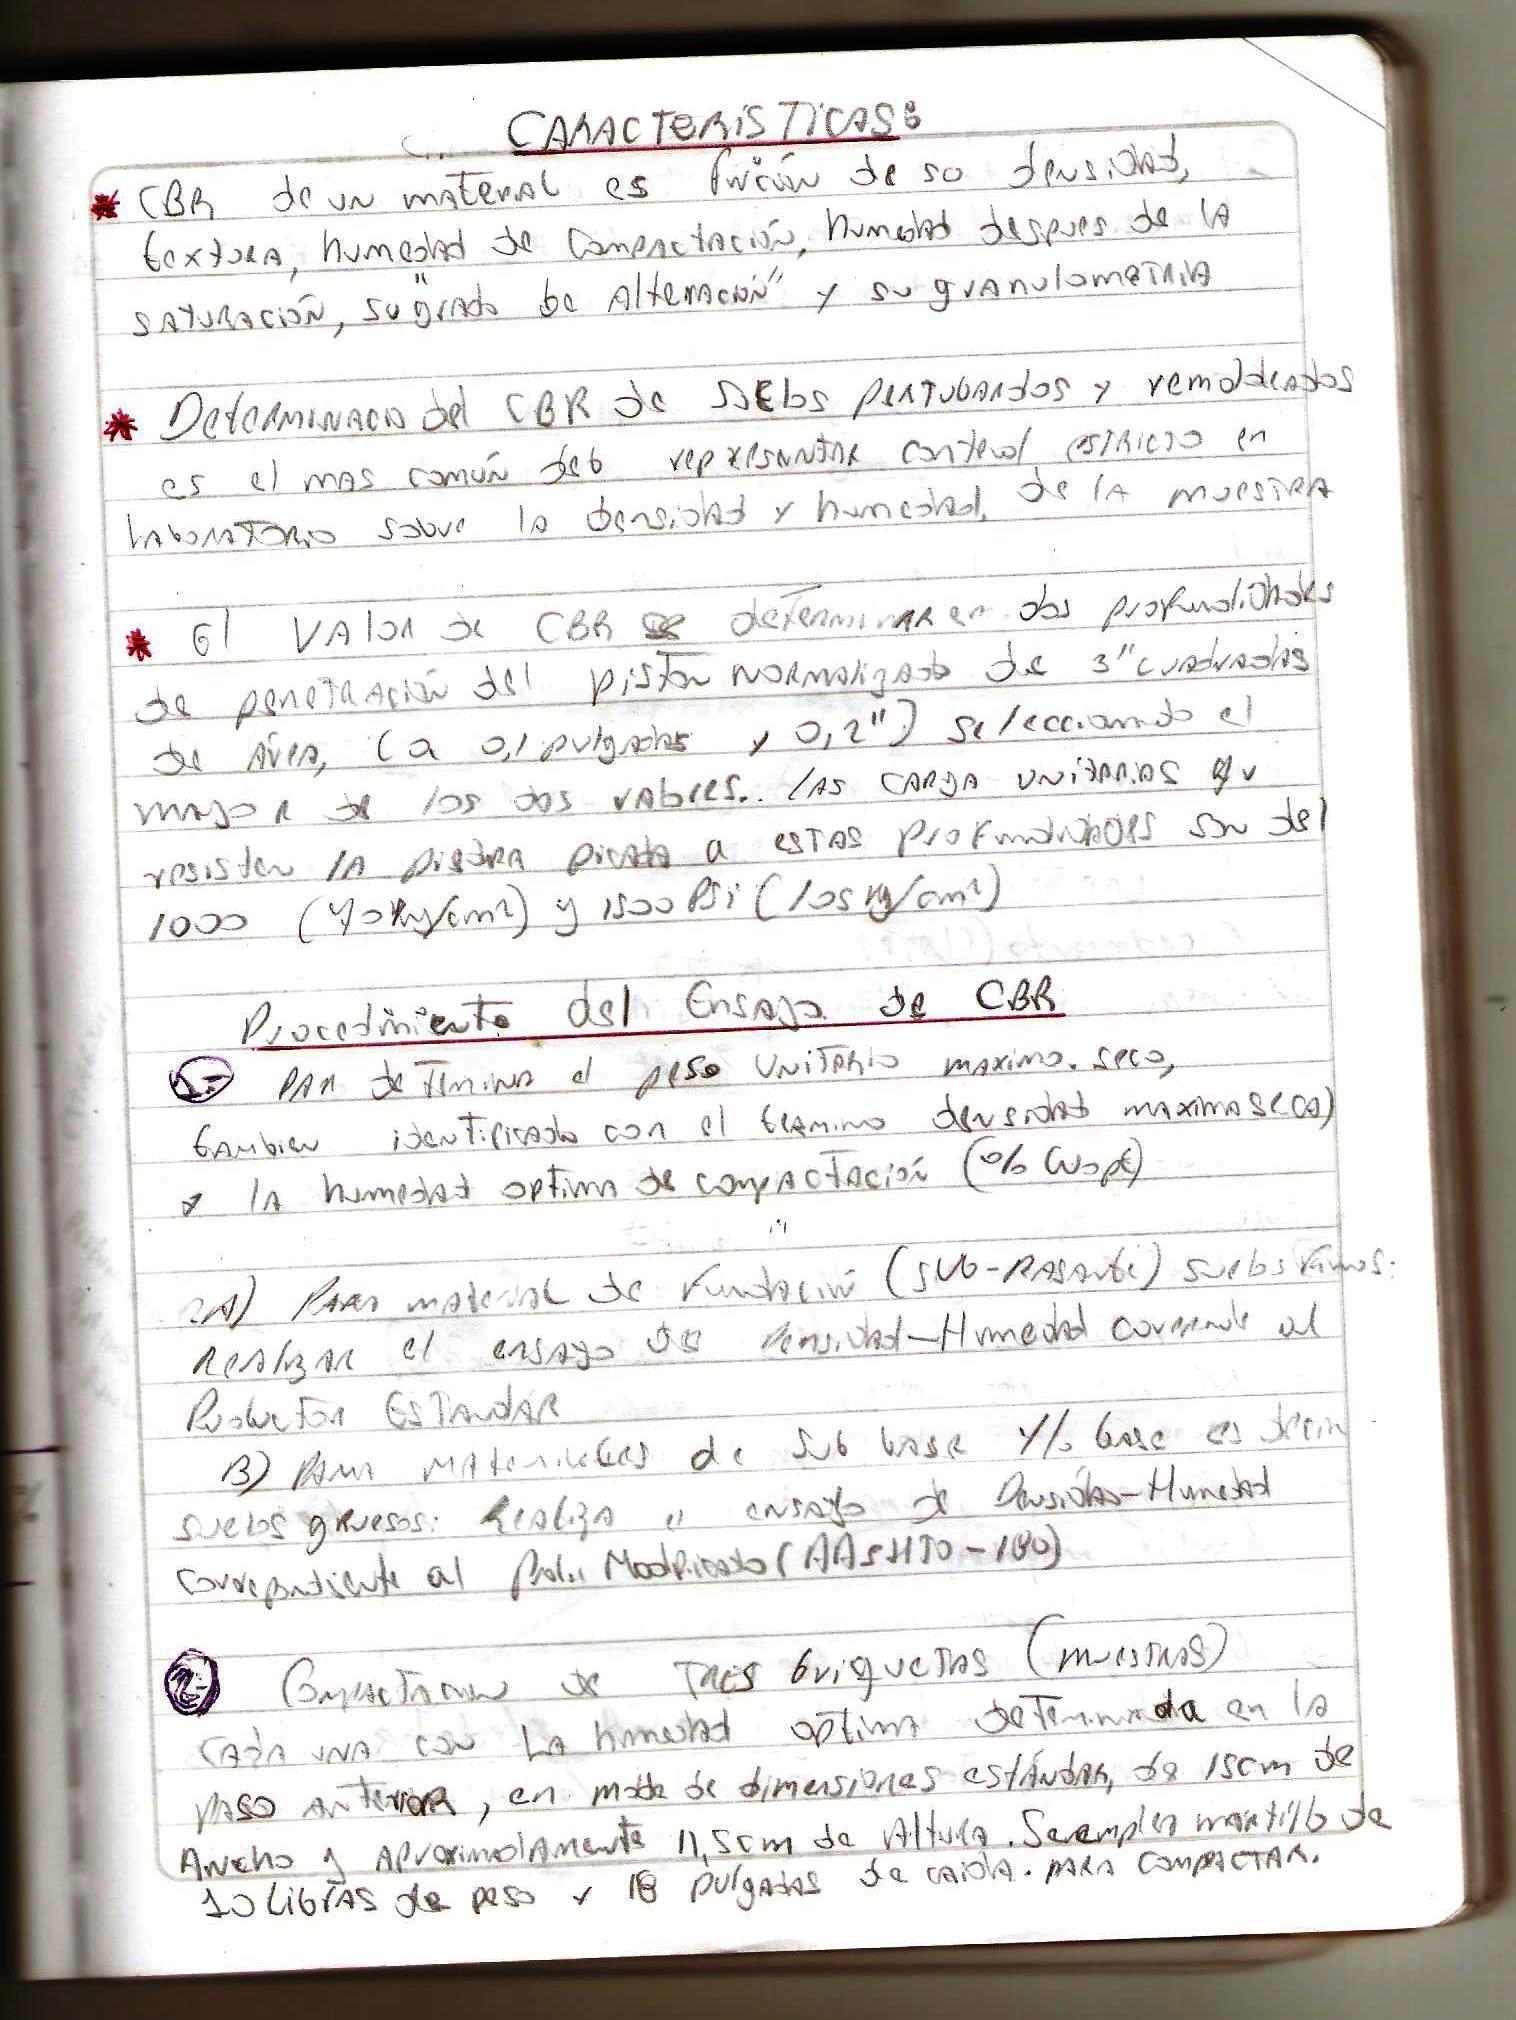 CARACTERISTICAS:
* CBR de un material es función de so densidad,
textura, humedad de compactación, humedad despues de la
saturación, su "grado de Alteración" y su granulometria
* Determinacio del CBR de suelos perturbardos y remoldeados
es el mas común deb represantar control estricto en
laboratorio sobre la densidad y humedad, de la muestra
* El Valor de CBR se determinar en dos profundidades
de penetración del piston normalizado de 3" cuadradas
de Área, (a 0,1 pulgadas y 0,2") seleccionando el
mayor de los dos valores. las carga unitarias qu
resisten la piedra picada a estas profundidades son del
1000 (70 kg/cm²) y 1500 Psi (105 kg/cm²)
Procedimiento del Ensayo de CBR
1.- Para determinar el peso unitario maximo seco,
tambien identificado con el termino densidad maxima seca)
y la humedad optima de compactación (% Wopt)
A) Para material de Fundación (sub-Rasante) suelos finos:
Realizar el ensayo de Densidad-Humedad al
Estandar
B) Para materiales de sub base y/o base es decir
suelos gruesos: Realiza el ensayo de Densidad-Humedad
correspondiente al Modificado (AASHTO-180)
2.- Compactacion de tres briquetas (muestras)
cada una con la humedad optima determinada en la
paso anterior, en molde de dimensiones estándar, de 15cm de
Ancho y aproximadamente 11,5cm de Altura. Se emplea martillo de
10 libras de peso y 18 pulgadas de caida. para compactar.